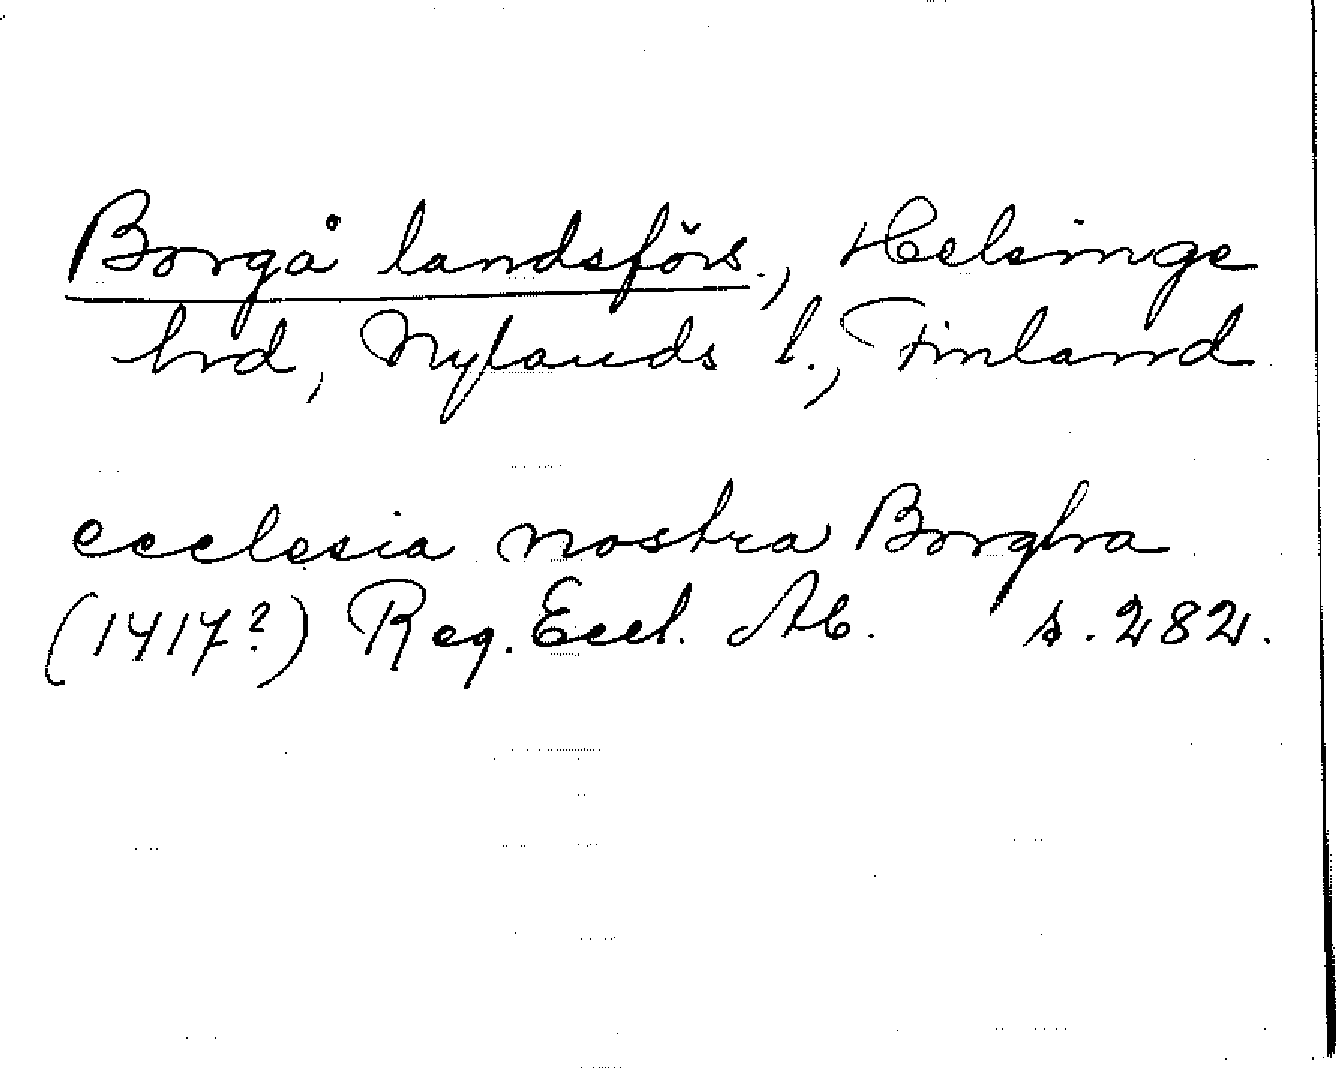 Borgå landsförs., Helsinge
hrd, Nylands l., Finland
ecclesia nostra Borgha
(1417?) Reg. Eccl. Ab. s. 282.